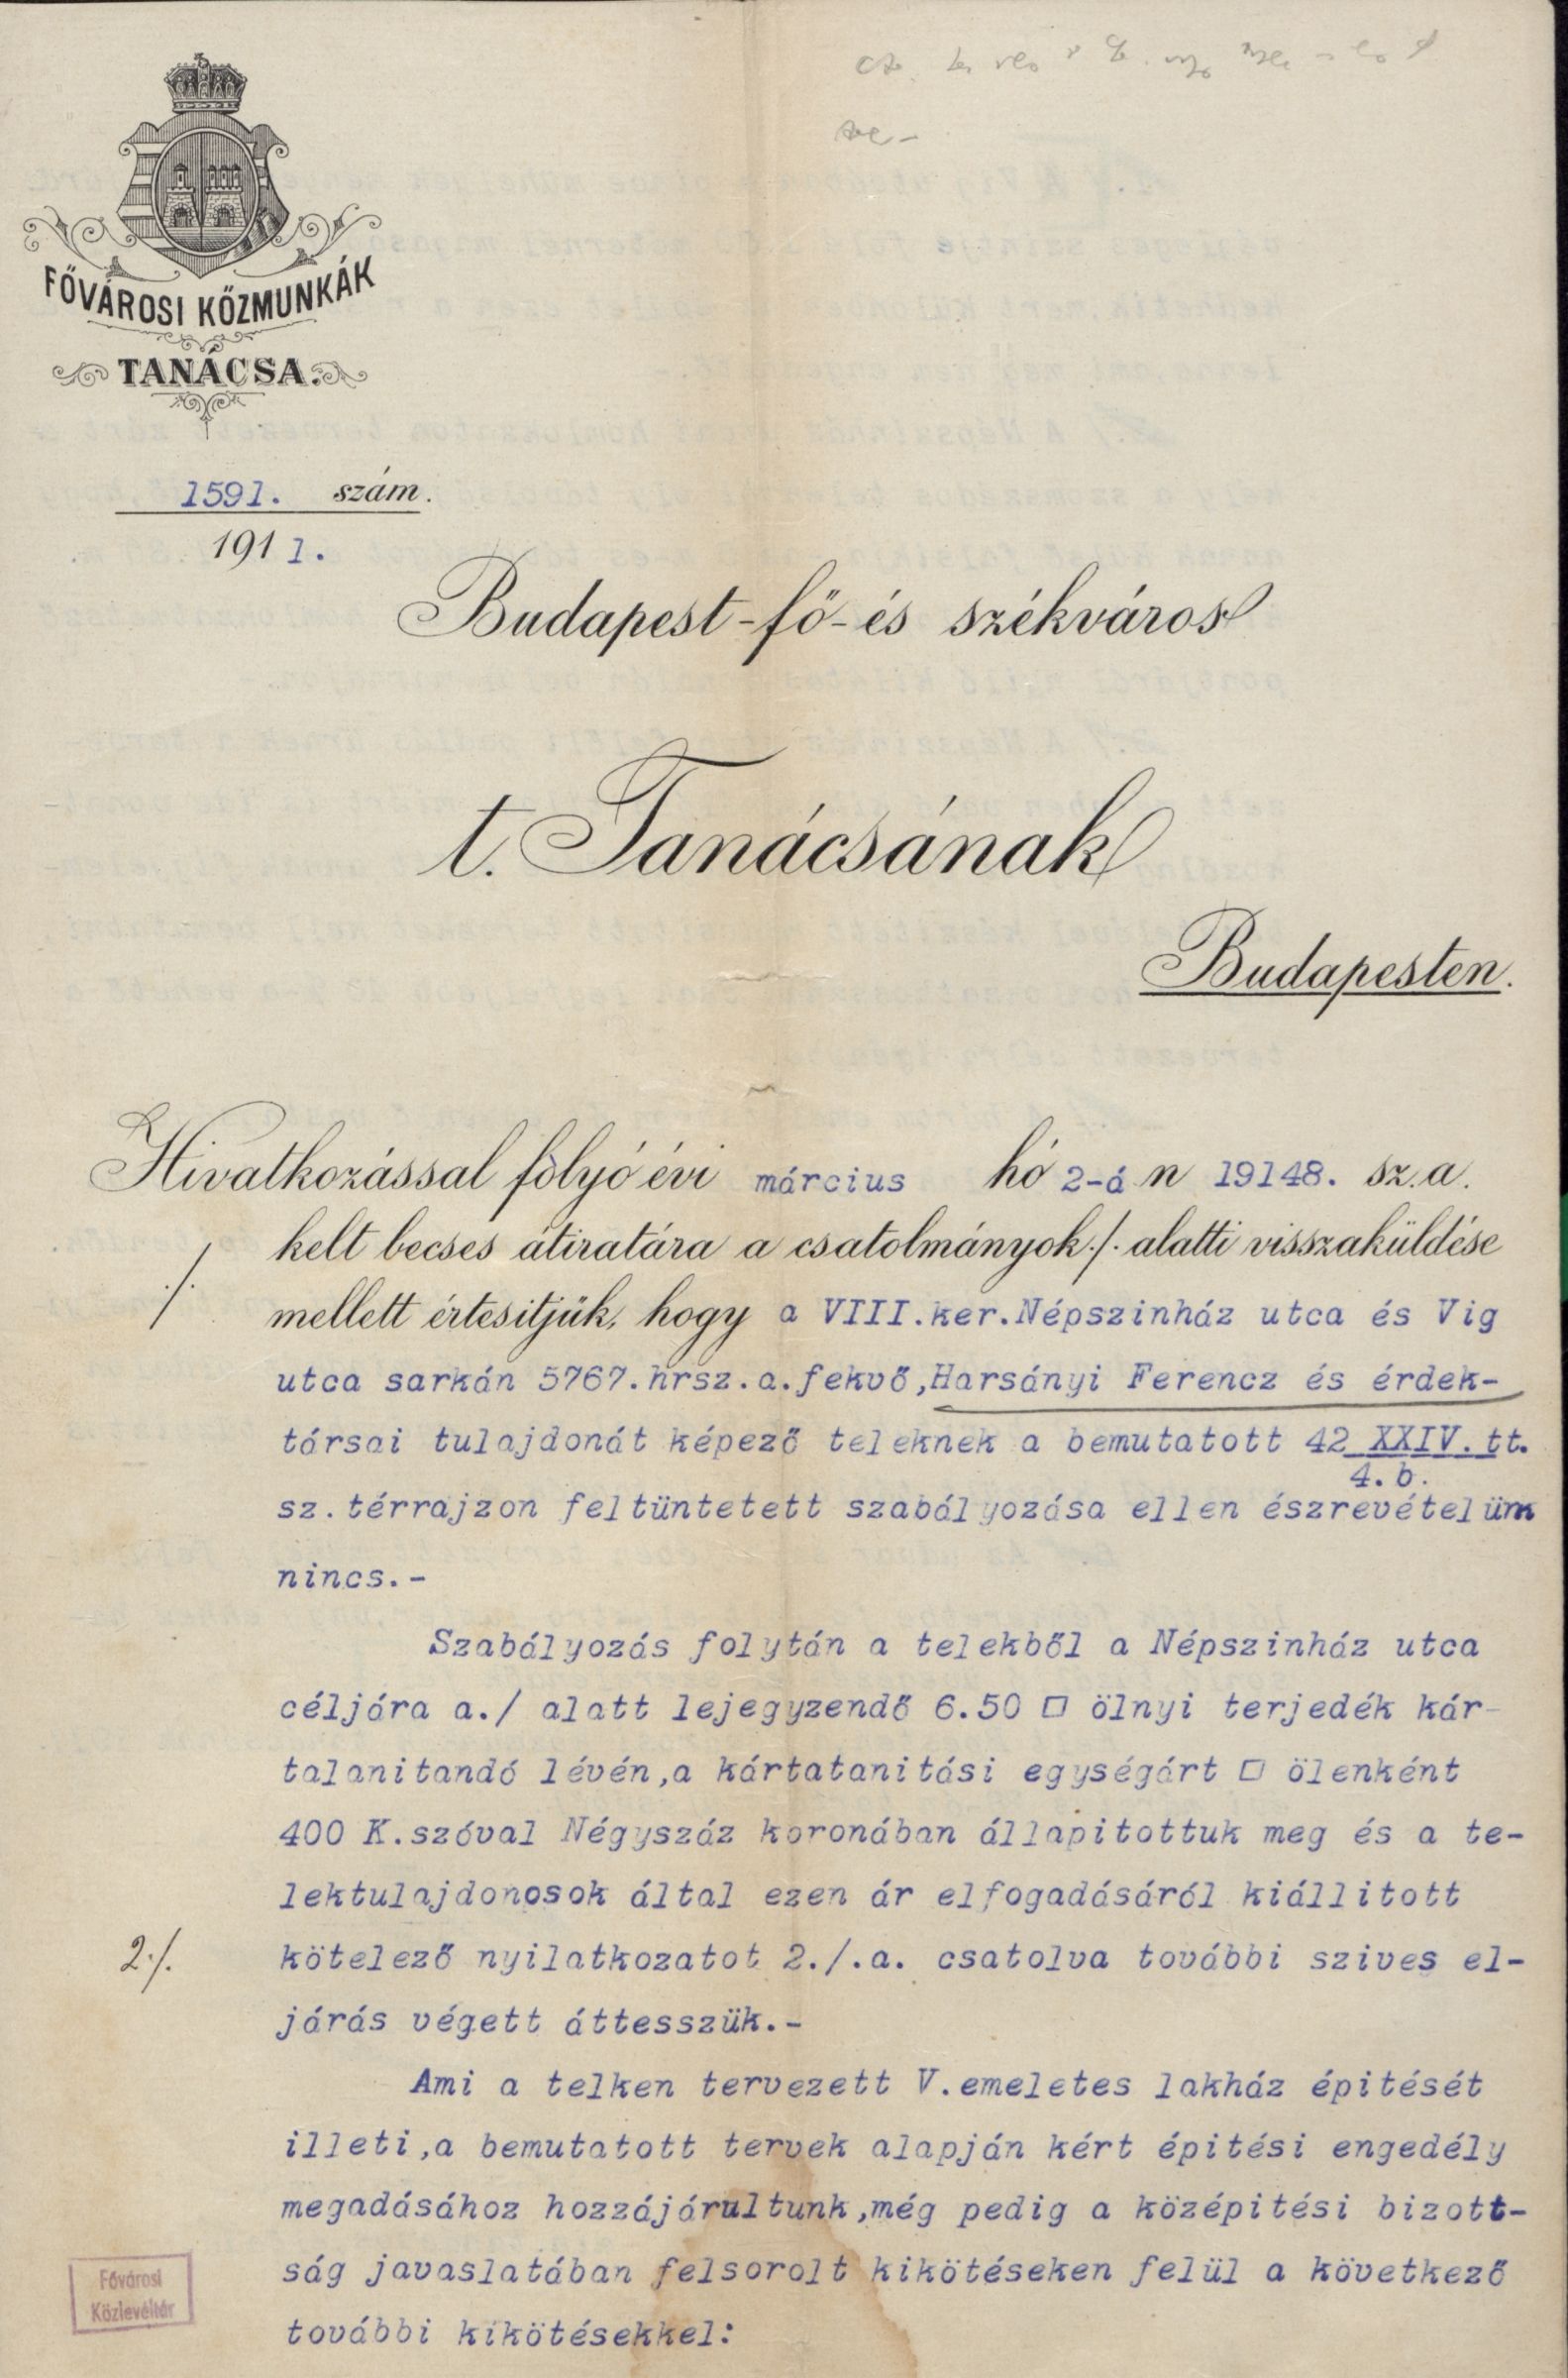 FŐVÁROSI KÖZMUNKÁK
TANÁCSA.
1591. szám.
1911.
Budapest-fő-és székváros
t. Tanácsának
Budapesten.
Hivatkozással folyó évi március hó 2-á n 19148. sz.a.
kelt becses átiratára a csatolmányok ·/· alatti visszaküldése
·/·
mellett értesitjük, hogy a VIII.ker.Népszinház utca és Vig
utca sarkán 5767.hrsz.a.fekvő,Harsányi Ferencz és érdek-
társai tulajdonát képező teleknek a bemutatott 42 XXIV. tt.
4.b.
sz.térrajzon feltüntetett szabályozása ellen észrevételüm
nincs.-
Szabályozás folytán a telekből a Népszinház utca
céljára a./ alatt lejegyzendő 6.50 □ ölnyi terjedék kár-
talanitandó lévén,a kártatanitási egységárt □ ölenként
400 K.szóval Négyszáz koronában állapitottuk meg és a te-
lektulajdonosok által ezen ár elfogadásáról kiállitott
2·/.
kötelező nyilatkozatot 2./.a. csatolva további szives el-
járás végett áttesszük.-
Ami a telken tervezett V.emeletes lakház épitését
illeti,a bemutatott tervek alapján kért épitési engedély
megadásához hozzájárultunk,még pedig a középitési bizott-
ság javaslatában felsorolt kikötéseken felül a következő
további kikötésekkel:
Fővárosi
Közlevéltár